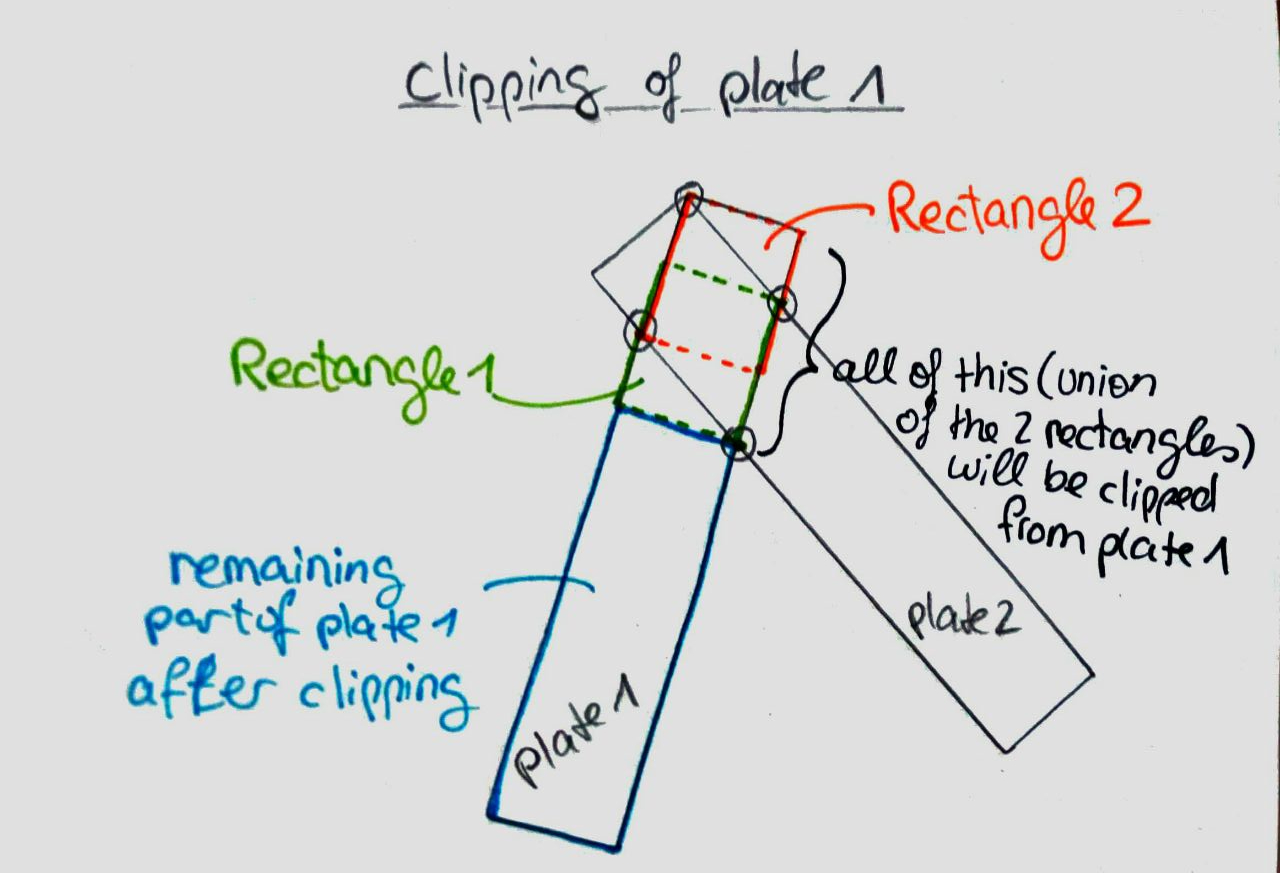 Clipping of plate 1
Rectangle 2
Rectangle 1
all of this (union
of the 2 rectangles)
will be clipped
from plate 1
remaining
part of plate 1
after clipping
plate 2
plate 1